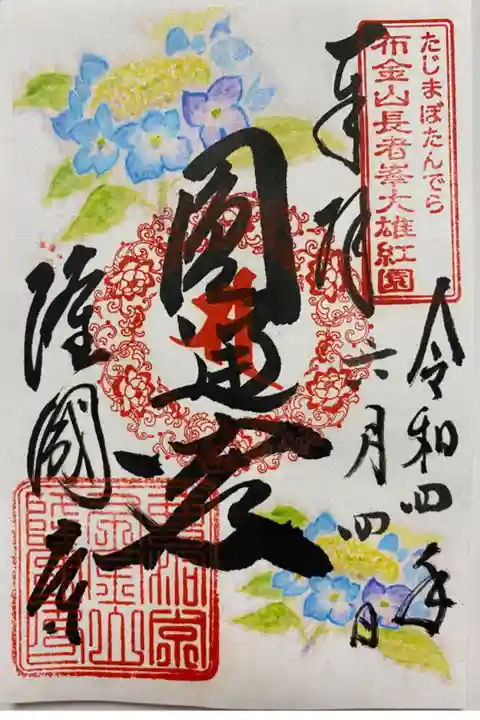 たじまぼたんでら
布金山長者峯大雄紅園
奉拝
令和四年
六月四日
圓通殿
隆國寺